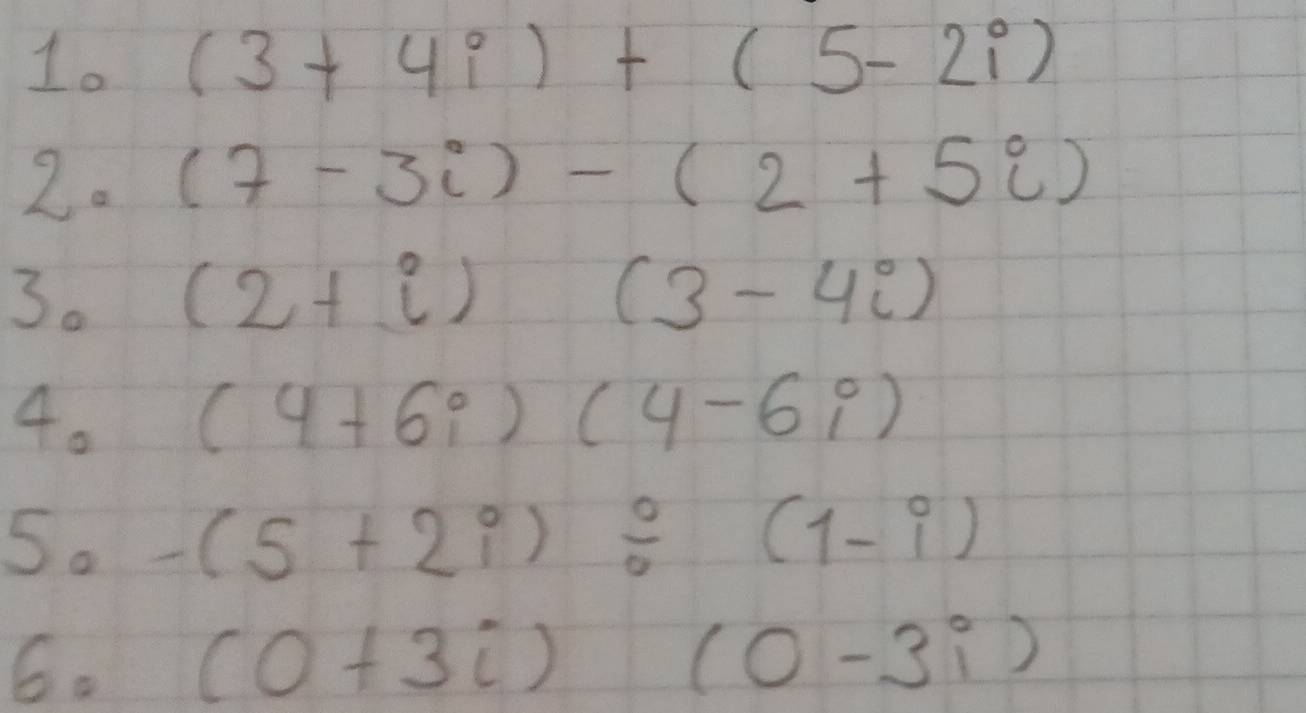 1. (3 + 4i) + (5 - 2i)
2. (7 - 3i) - (2 + 5i)
3. (2 + i) (3 - 4i)
4. (4 + 6i) (4 - 6i)
5. -(5 + 2i) ÷ (1 - i)
6. (0 + 3i) (0 - 3i)